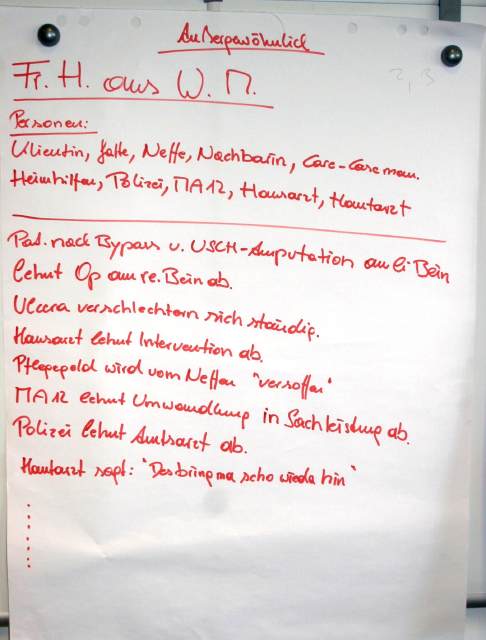 Außergewöhnlich
2, 3
Fr. H. aus W. M.
Personen:
Klientin, Gatte, Neffe, Nachbarin, Care-Caseman.
Heimhilfen, Polizei, MA12, Hausarzt, Hautarzt
Pat. nach Bypass u. USCH-Amputation am li Bein
lehnt Op am re. Bein ab.
Ulcera verschlechtern sich ständig.
Hausarzt lehnt Intervention ab.
Pflegegeld wird vom Neffen "versoffen"
MA12 lehnt Umwandlung in Sachleistung ab.
Polizei lehnt Amtsarzt ab.
Hautarzt sagt: "Des bring ma scho wieda hin"